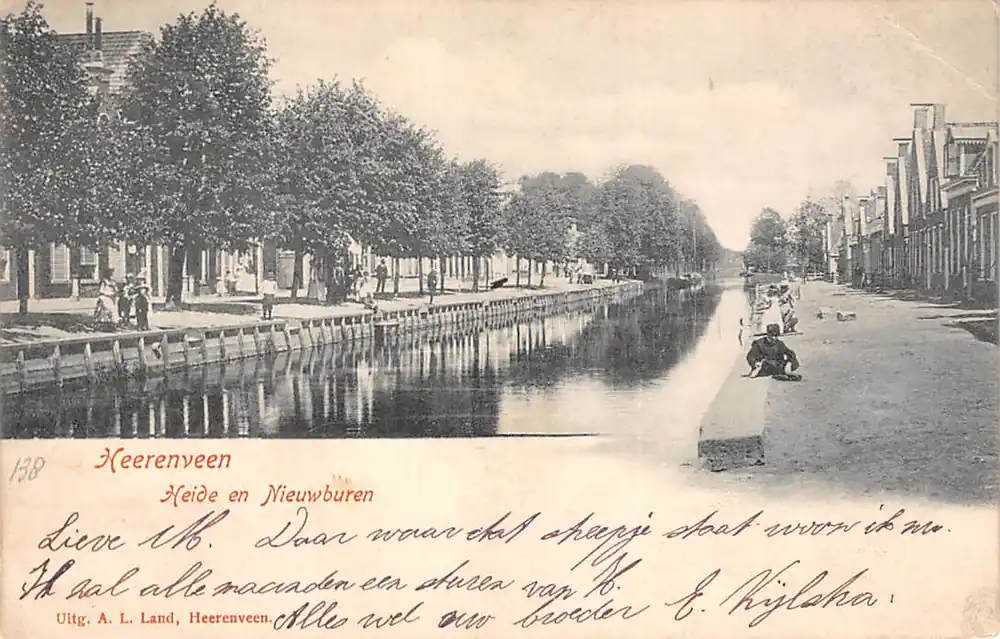 138
Heerenveen
Heide en Nieuwburen
Lieve M. Daar waar dat scheepje staat woon ik nu.
Ik zal alle maanden een sturen van H.
Uitg. A. L. Land, Heerenveen.
Alles wel uw broeder E. Kijlstra.